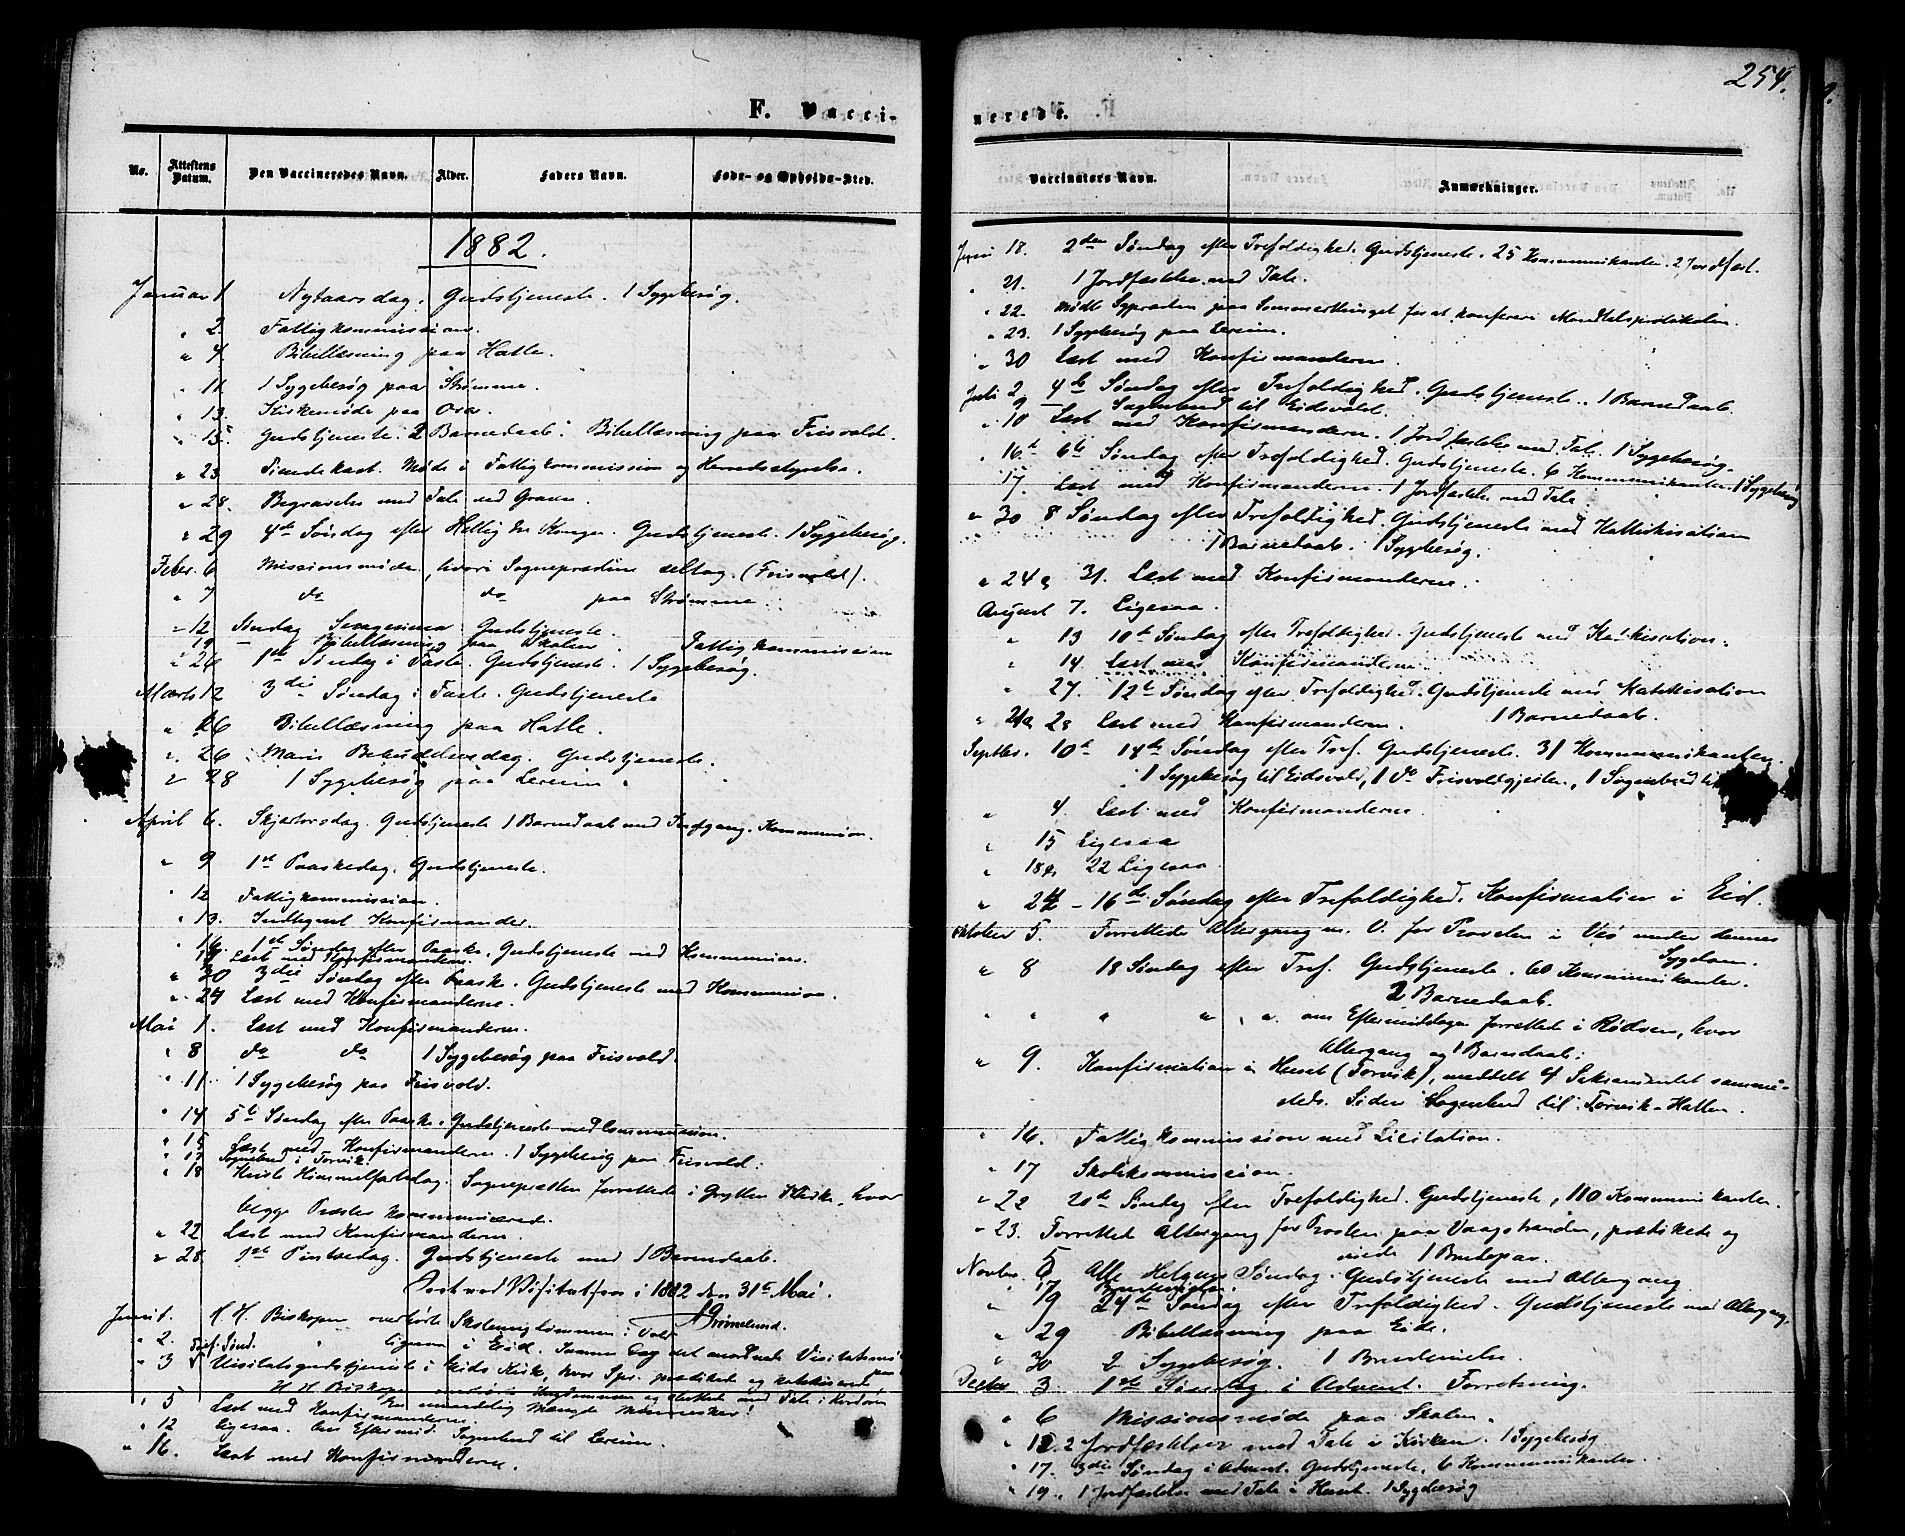 254.
F. Vacci-
nerede.
No.
Attestens Datum.
Den Vaccineredes Navn.
Alder.
Faders Navn.
Føde- og Opholds-Sted.
Vaccinators Navn.
Anmærkninger.
1882.
Januar 1 Nytaarsdag. Gudstjeneste. 1 Sygebesøg.
" 2. Fattigkommission.
" 4 Bibellæsning paa Hatle.
" 11 1 Sygebesøg paa Strømme.
" 13.
" 15. Gudstjeneste. 2 Barnedaab. Bibellæsning paa Frisvold.
" 23 Møde i Fattigkommission og Herredsstyrelse.
" 28. Begravelse med Tale ved Graven.
" 29 4de Søndag efter Hellig tre Konger. Gudstjeneste. 1 Sygebesøg.
Febr. 6 Missionsmøde, hvori Sognepræsten deltog. (Frisvold).
" 7 do do paa Strømme.
" 12 Søndag Sexagesima Gudstjeneste.
" 19 Bibellæsning paa Skolen Fattigkommission
" 26 1ste Søndag i Faste. Gudstjeneste. 1 Sygebesøg.
Marts 12 3die Søndag i Faste. Gudstjeneste
" 16 Bibellæsning paa Hatle.
" 26 Mariæ Bebudelsesdag. Gudstjeneste.
" 28 1 Sygebesøg paa Lereim
April 6. Skjærtorsdag. Gudstjeneste 1 Barnedaab med Kommunion.
" 9 1ste Paaskedag. Gudstjeneste.
" 12 Fattigkommission.
" 13. Indtegnet Konfirmander.
" 16. 1ste Søndag efter Paaske. Gudstjeneste med Kommunion.
Læst med Konfirmanderne.
" 30 3die Søndag efter Paaske. Gudstjeneste med Kommunion.
" 24 Læst med Konfirmanderne.
Mai 1. Læst med Konfirmanderne.
" 8 do do 1 Sygebesøg paa Frisvold.
" 11 1 Sygebesøg paa Frisvold.
" 14 5te Søndag efter Paaske. Gudstjeneste med Communion.
" 15 Læst med Konfirmanderne. 1 Sygebesøg paa Frisvold.
" 17 Sognebud i Torvik.
" 18 Kristi Himmelfartsdag. Sognepræsten forrettede i Gryttens Kirke, hvor
begge Præster kommunicerede.
" 22 Læst med Konfirmanderne.
" 28 1ste Pintsedag. Gudstjeneste med 1 Barnedaab.
ved Visitatsen i 1882 den 31te Mai.
Grimelund.
Juni 1. H. H. Biskopen overhørte Skoleungdommen i Vold
" 2. " ligesaa i Eid. Samme Dag det anordnede Visitatsmøde
" 3 Tref. Sønd. Visitatsgudstjeneste i Eids Kirke, hvor Spr. prædikede og katekiserede
H. H. Biskopen Ungdommen og sluttede med Tale i Kordøren
En umaadelig Mængde Mennesker!
" 5 Læst med Konfirmanderne.
" 12 Ligesaa. Om Eftermid. Sognebud til Lereim.
" 16. Læst med Konfirmanderne.
Juni 18. 2den Søndag efter Trefoldighed. Gudstjeneste. 25 Kommunikanter. 2 Jordfæst.
" 21. 1 Jordfæstelse med Tale.
" 22 mødte Sognepræsten paa Sommerthinget for at konferere Mandtalsprotokollen.
" 23. 1 Sygebesøg paa Lereim.
" 30 Læst med Konfirmanderne.
Juli 2 4de Søndag efter Trefoldighed. Gudstjeneste. 1 Barnedaab.
9 Sognebud til Eidsvold.
" 10 Læst med Konfirmanderne. 1 Jordfæstelse med Tale. 1 Sygebesøg.
" 16. 6te Søndag efter Trefoldighed. Gudstjeneste. 6 Kommunikanter. 1 Sygebesøg
" 17. Læst med Konfirmanderne. 1 Jordfæstelse med Tale
" 30 8 Søndag efter Trefoldighed. Gudstjeneste med Kattekisation
1 Barnedaab. 1 Sygebesøg.
" 24 & 31. Læst med Konfirmanderne.
August 7. Ligesaa.
" 13 10de Søndag efter Trefoldighed. Gudstjeneste med Katekisation.
" 14. Læst med Konfirmanderne.
" 27. 12te Søndag efter Trefoldighed. Gudstjeneste med Katekisation
" 21 & 28 Læst med Konfirmanderne. 1 Barnedaab.
Septbr. 10de 14de Søndag efter Tref. Gudstjeneste. 31 Kommunikanter.
1 Sygebesøg til Eidsvold, 1 do Frisvold, 1 Sognebud til
" 4. Læst med Konfirmanderne.
" 15 Ligesaa
" 18 & 22 Ligesaa.
" 24 - 16de Søndag efter Trefoldighed. Konfirmation i Eid.
Oktober 5. Forrettede Altergang m. V. for Provsten i Veø under dennes
Sygdom.
" 8 18 Søndag efter Tref. Gudstjeneste. 60 Kommunikanter.
2 Barnedaab.
" " " " " om Eftermiddagen forrettede i Rødven, hvor
Altergang og 1 Barnedaab.
" 9. Konfirmation i Huset (Torvik), meddelt Sakramentet samme-
steds. Siden Sognebud til Torvik-Hatlen.
" 16. Fattigkommission med Licitation.
" 17 Skolekommission.
" 22 20de Søndag efter Trefoldighed. Gudstjeneste, 110 Kommunikanter.
" 23. Forrettet Altergang for Provsten paa Vaagstranden, prædikede og
viede 1 Brudepar.
Novbr. 5 Alle Helgens Søndag. Gudstjeneste med Altergang
" 17 Brudevielse.
" 19 24de Søndag efter Trefoldighed. Gudstjeneste med Altergang.
" 29 Bibellæsning paa Eide.
" 30 2 Sygebesøg. 1 Brudevielse.
Decbr 3. 1ste Søndag i Advent. Forretning.
" 6 Missionsmøde paa Skolen.
" 12. 2 Jordfæstelser med Tale i Kirken. 1 Sygebesøg
" 17. 3die Søndag i Advent. Gudstjeneste. 6 Kommunikanter.
" 19. 1 Jordfæstelse med Tale i Huset. 1 Sygebesøg